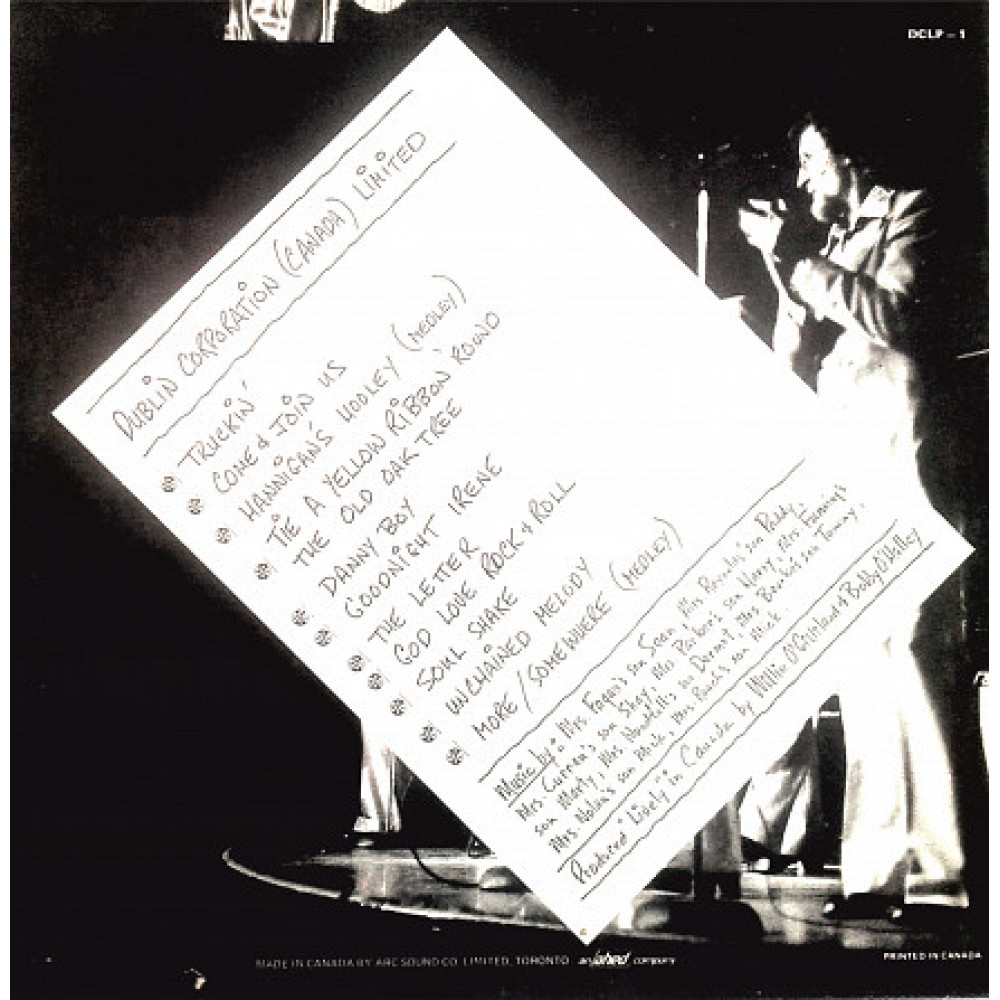 DCLP – 1
DUBLIN CORPORATION (CANADA) LIMITED
TRUCKIN'
COME & JOIN US
HANNIGAN'S HOOLEY (MEDLEY)
TIE A YELLOW RIBBON 'ROUND
THE OLD OAK TREE
DANNY BOY
GOODNIGHT IRENE
THE LETTER
GOD LOVE ROCK & ROLL
SOUL SHAKE
UNCHAINED MELODY
MORE / SOMEWHERE (MEDLEY)
Music by: Mrs. Fagan's son Sean, Mrs son Paddy,
Mrs. Curran's son Shay, Mrs son Harry, Mrs
son Marty, Mrs. son Dermot, Mrs son Tommy,
Mrs. Nolan's son Mick, Mrs. Roach's son Mick.
Produced "Lively" in Canada by Willie O' & Bobby O'
MADE IN CANADA BY ARC SOUND CO. LIMITED, TORONTO an ahed company
PRINTED IN CANADA